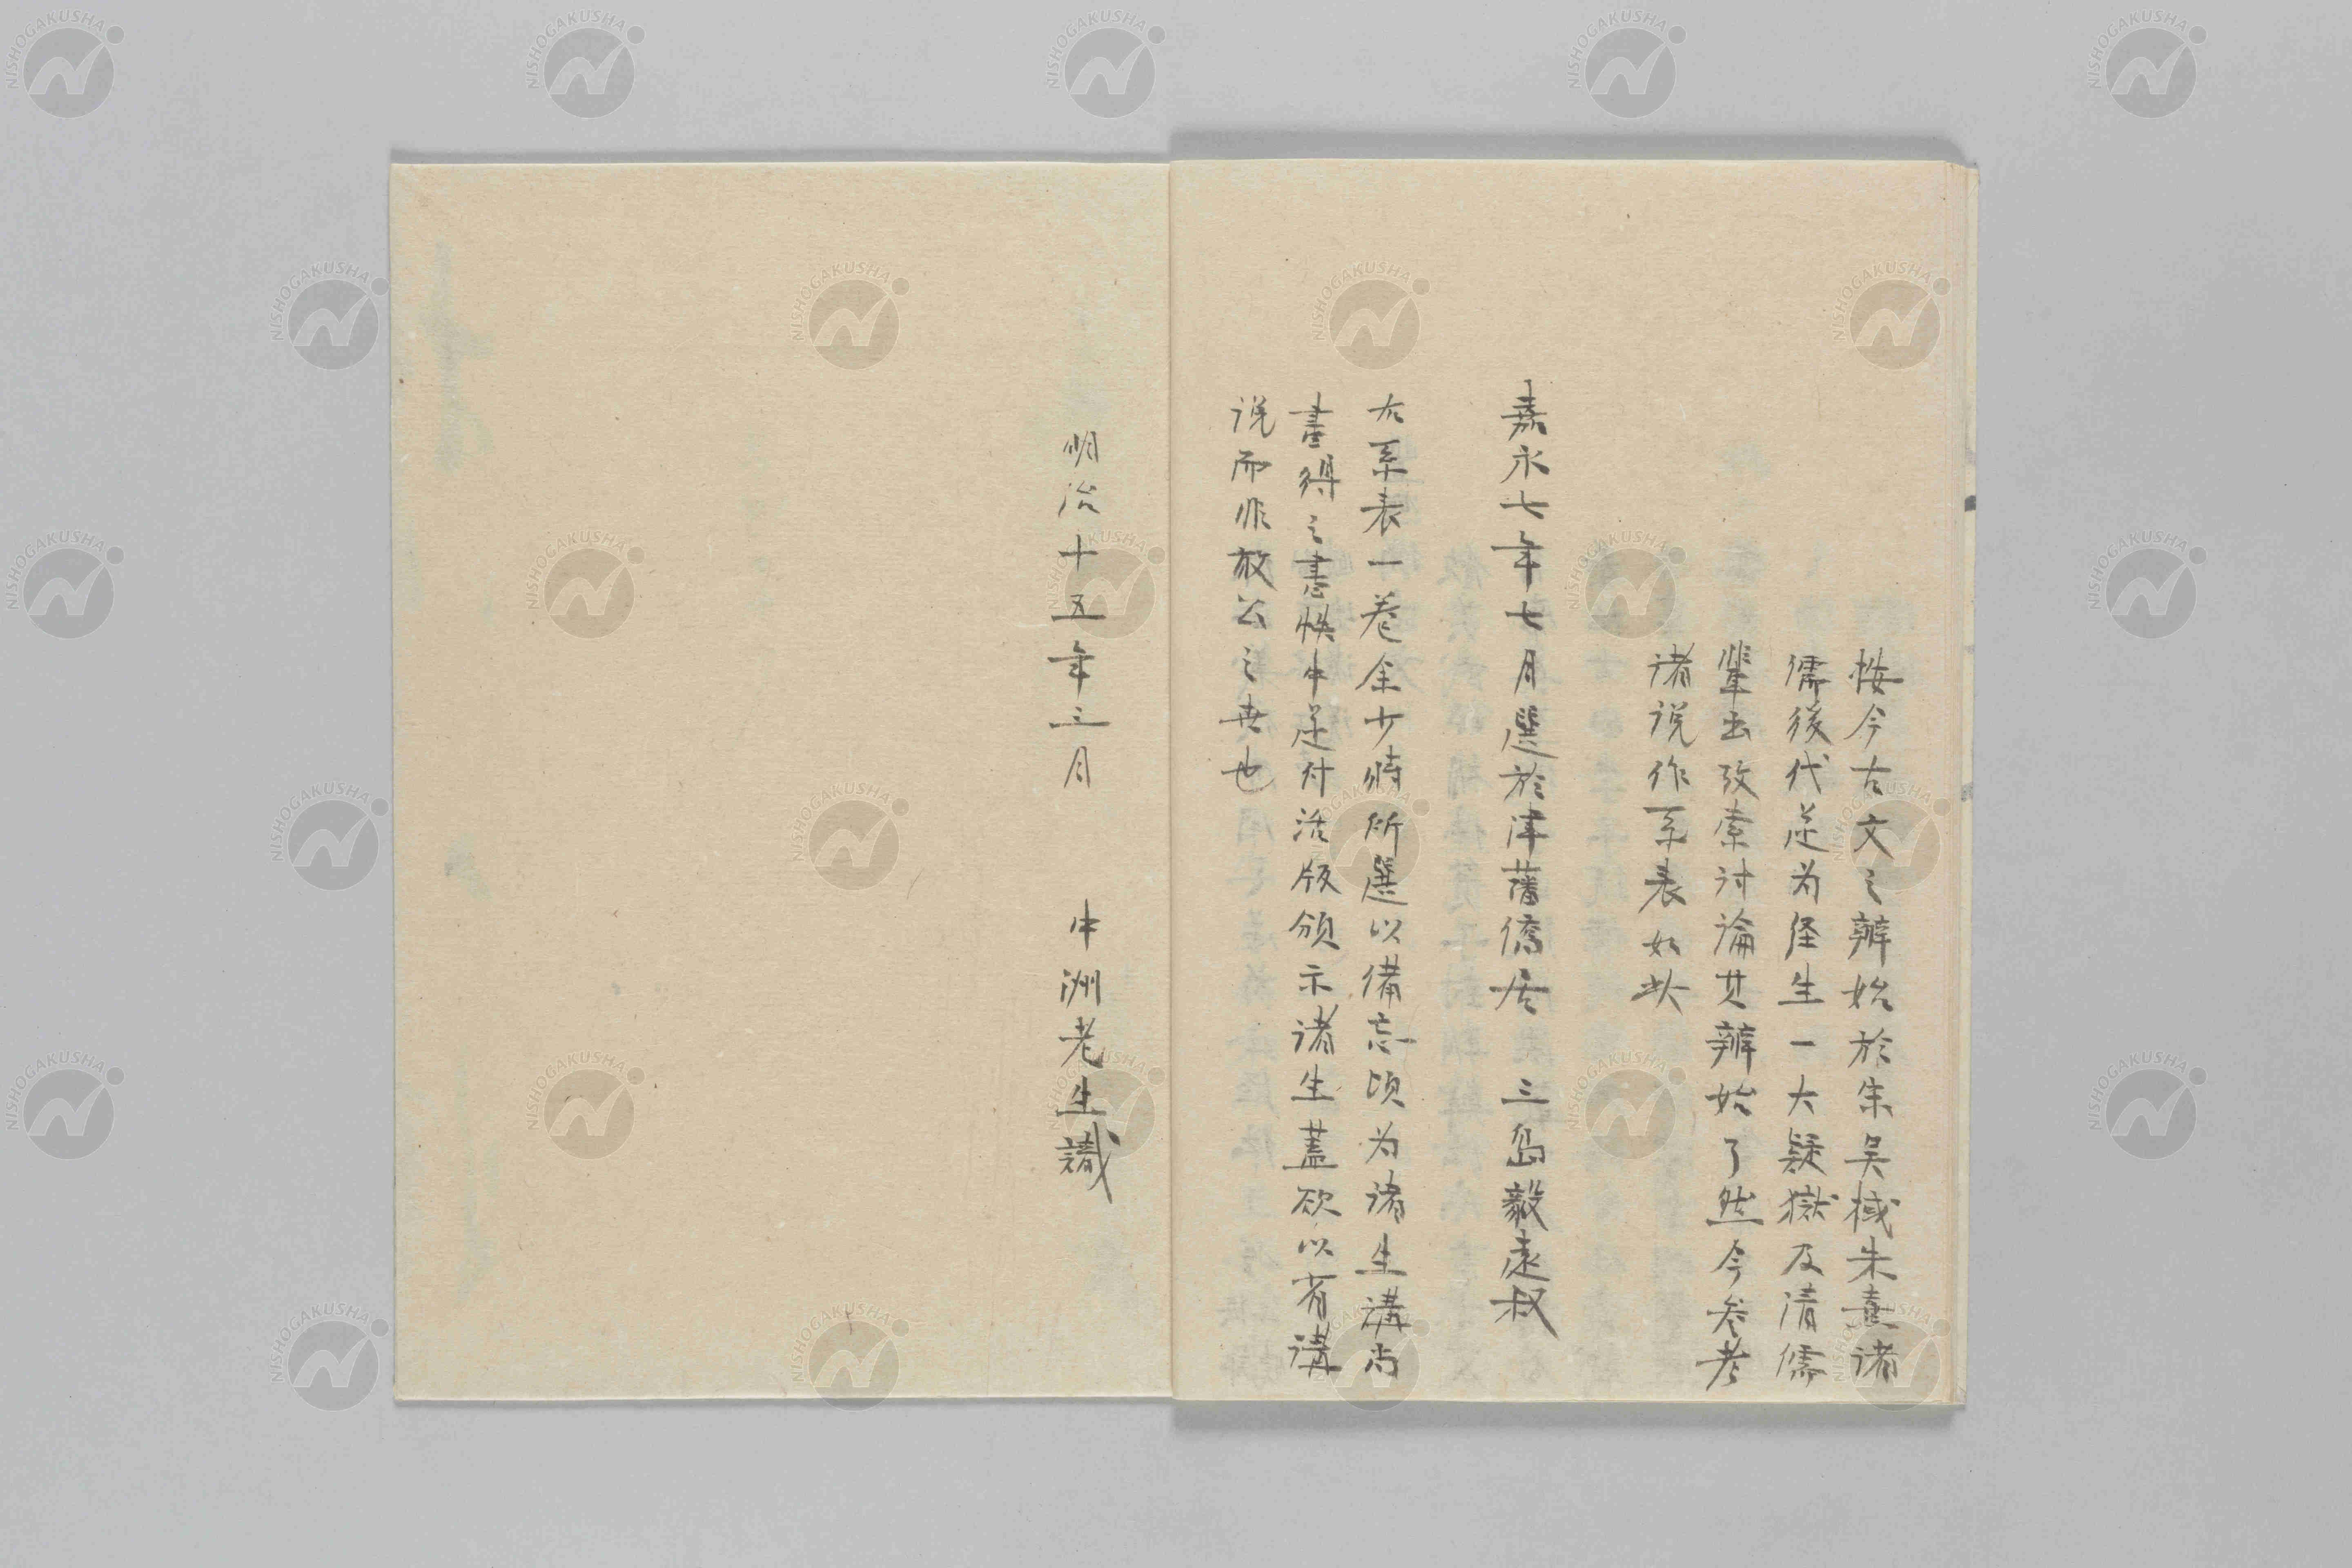 按今古文之辨始於朱吴棫朱熹諸
儒後代遂为経生一大疑獄及清儒
輩出攷索討論其辨始了然今参考
諸説作系表如此
嘉永七年七月選於津藩僑居 三島毅遠叔
右系表一巻余少時所選以備忘頃为諸生講尚
書得之書帙中遂付活版頒示諸生蓋欲以省講
説而非放公之世也
明治十五年三月 中洲老生識
NISHOGAKUSHA